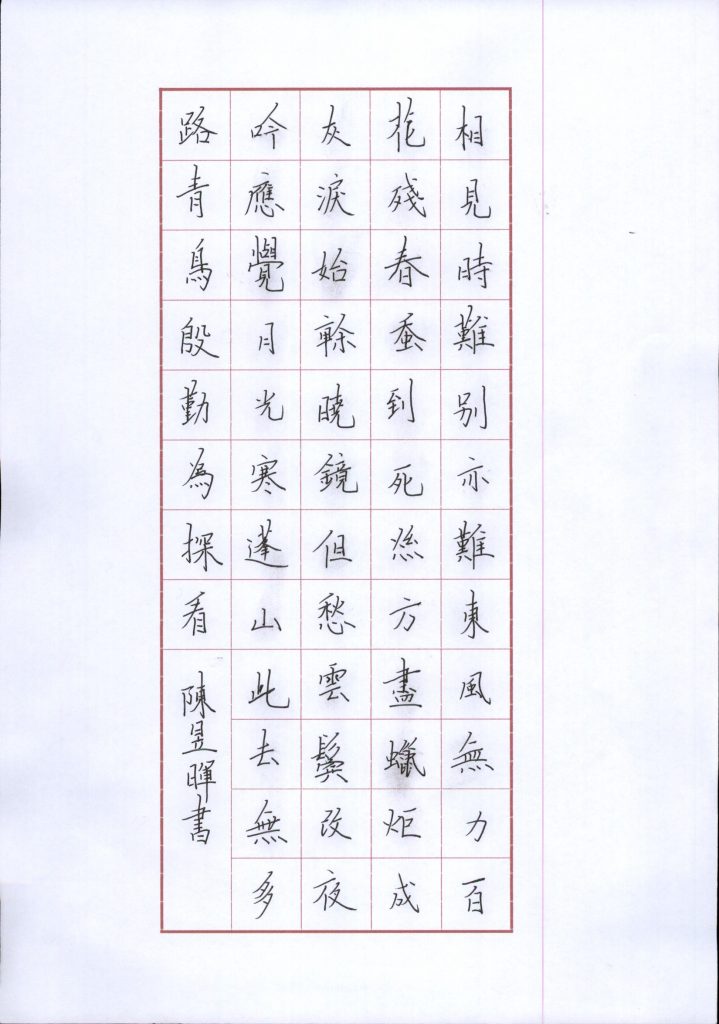 相見時難別亦難東風無力百
花殘春蚕到死絲方盡蠟炬成
灰淚始乾曉鏡但愁雲鬢改夜
吟應覺月光寒蓬山此去無多
路青鳥殷勤為探看
陳昱暉書